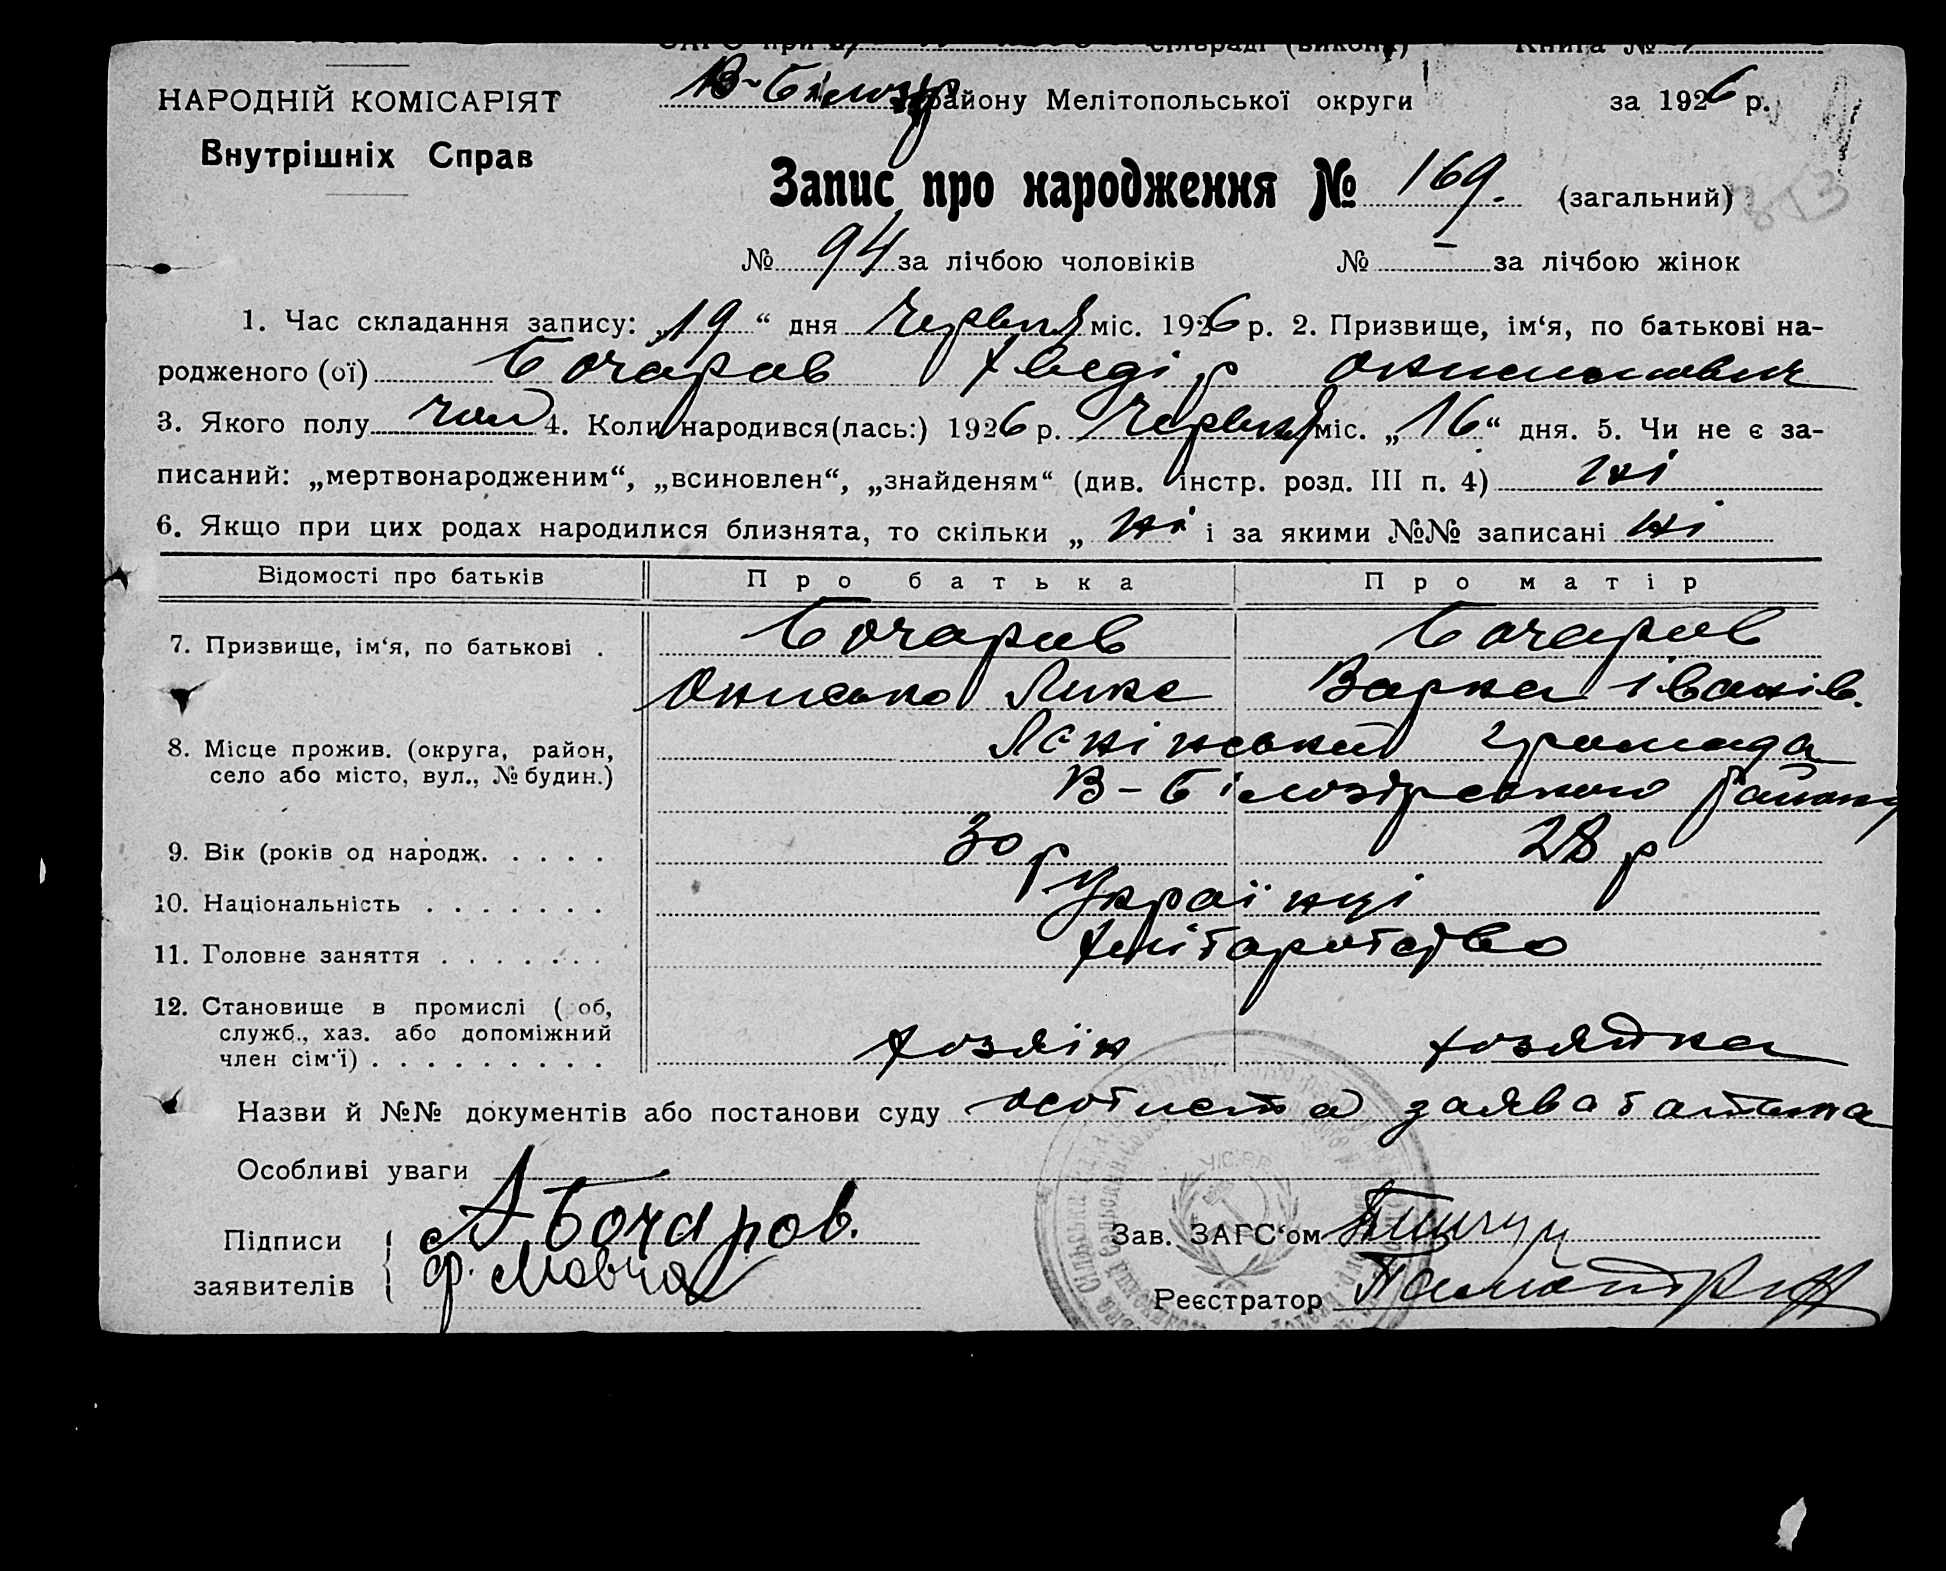 ЗАГС при сільраді (виконк) Книга №
НАРОДНІЙ КОМІСАРІЯТ В-Білозір району Мелітопольської округи за 1926 р.
Внутрішніх Справ
Запис про народження № 169. (загальний)
№ 94 за лічбою чоловіків № — за лічбою жінок
1. Час складання запису: „19“ дня Червня міс. 1926 р. 2. Призвище, ім‘я, по батькові на-
родженого (ої) Бочаров Хведір
3. Якого полу чол 4. Коли народився(лась:) 1926 р. Червня міс. „16“ дня. 5. Чи не є за-
писаний: „мертвонародженим“, „всиновлен“, „знайденям“ (див. інстр. розд. III п. 4) ні
6. Якщо при цих родах народилися близнята, то скільки „ ні і за якими №№ записані ні
Відомості про батьків Про батька Про матір
7. Призвище, ім‘я, по батькові . Бочаров Бочаров
Онисько Варка Іванів.
8. Місце прожив. (округа, район, громада
село або місто, вул., № будин.) В-Білозірського району
9. Вік (років од народж. . . . . 30 р 28 р
10. Національність . . . . . . . Українці
11. Головне заняття . . . . . . . хліборобство
12. Становище в промислі ( об,
служб., хаз. або допоміжний
член сім‘ї) . . . . . . . . . хозяїн хозяйка
Назви й №№ документів або постанови суду особиста заява батька
Особливі уваги
Підписи А Бочаров. Зав. ЗАГС‘ом
заявителів Ф. Мовчан Реєстратор
У.С.Р.Р.